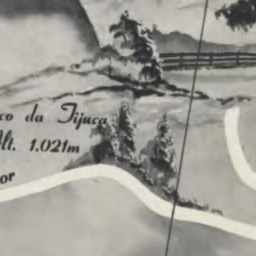 co da Tijuca
Alt. 1.021m
or